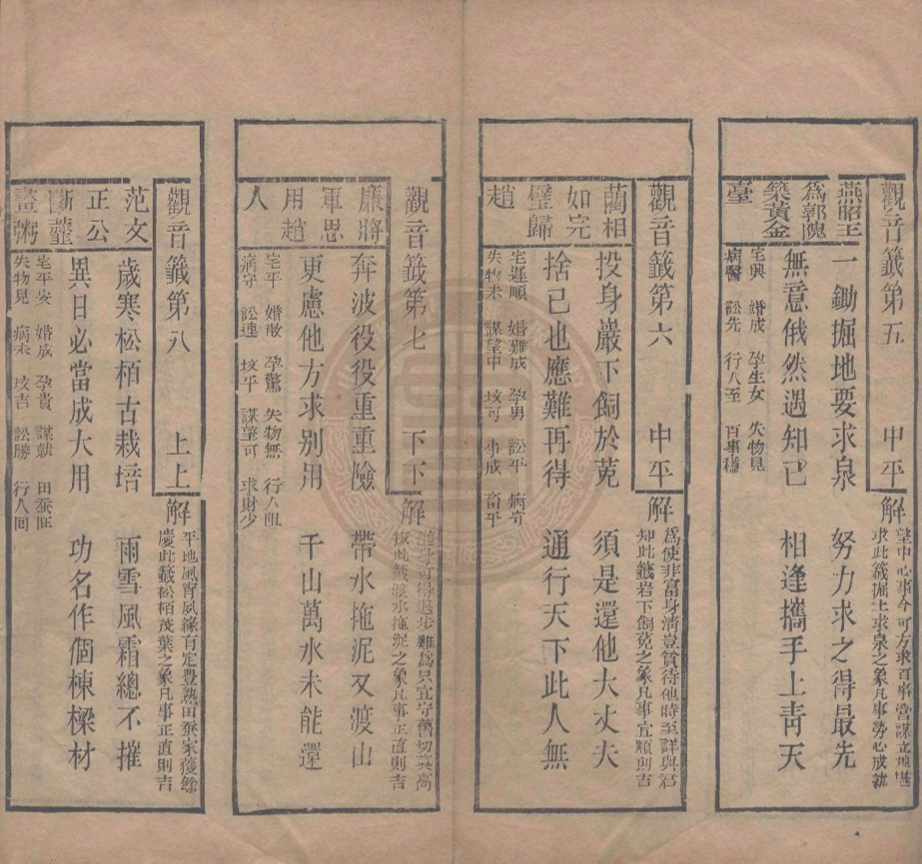 觀音籤第五 中平
燕昭王
為郭隗
築黃金
臺
解
望中心事今可方求百事當謀立地基
求此籤掘土求泉之象凡事勞心成就
一鋤掘地要求泉 努力求之得最先
無意俄然遇知己 相逢攜手上青天
宅興 婚成 孕生女 失物見
病醫 訟先 行人至 百事穩
觀音籤第六 中平
藺相
如完
璧歸
趙
解
為使非富身清豈貧待他時至詳與君
知此籤岩下飼兔之象凡事宜順則吉
投身巖下飼於菟 須是還他大丈夫
捨己也應難再得 通行天下此人無
宅運順 婚難成 孕男 訟平 病寄
失物未 謀望中 坟可 事成 畜平
觀音籤第七 下下
廉將
軍思
用趙
人
解
身可得退步難為只宜守舊切莫高
此籤渡水拖泥之象凡事正直則吉
奔波役役重重險 帶水拖泥又渡山
更慮他方求別用 千山萬水未能還
宅平 婚散 孕驚 失物無 行人阻
病守 訟連 坟平 謀望可 求財少
觀音籤第八 上上
范文
正公
斷虀
畫粥
解
平地風宵夙緣有定豐熟田蚕家獲餘
慶此籤松栢茂葉之象凡事正直則吉
歲寒松栢古栽培 雨雪風霜總不摧
異日必當成大用 功名作個棟樑材
宅平安 婚成 孕貴 謀就 田蚕旺
失物見 病未 坟吉 訟勝 行人回